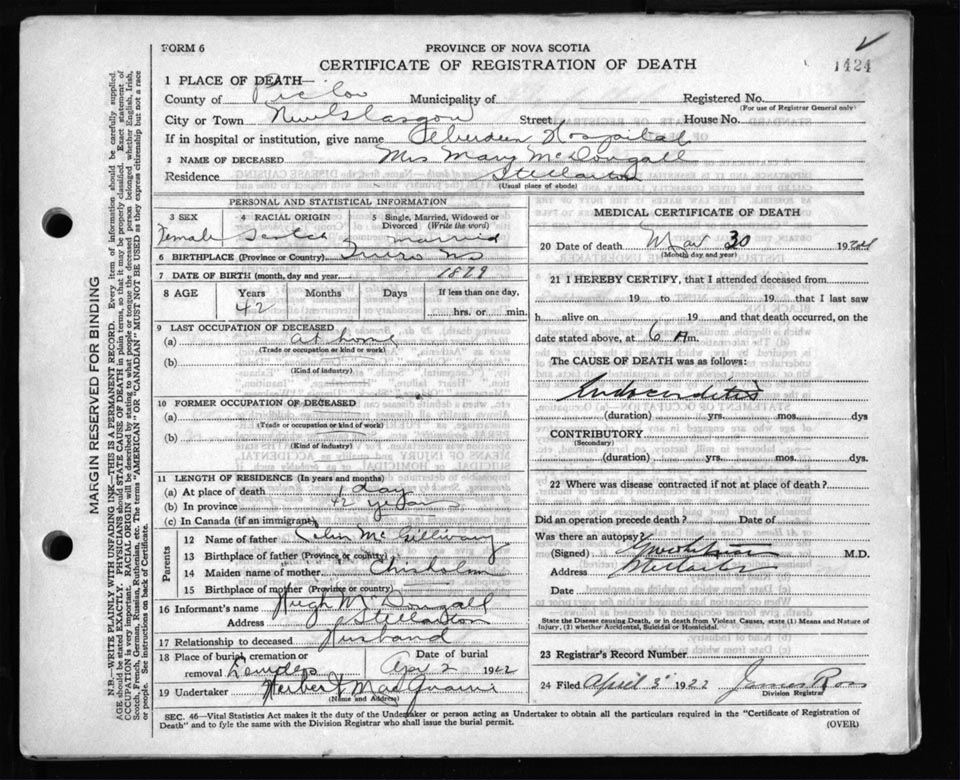 FORM 6
PROVINCE OF NOVA SCOTIA
CERTIFICATE OF REGISTRATION OF DEATH
1424
1 PLACE OF DEATH—
County of Pictou Municipality of Registered No.
(For use of Registrar General only)
City or Town New Glasgow Street House No.
If in hospital or institution, give name Aberdeen Hospital
2 NAME OF DECEASED Mrs Mary McDougall
Residence Stellarton
(Usual place of abode)
PERSONAL AND STATISTICAL INFORMATION
3 SEX 4 RACIAL ORIGIN 5 Single, Married, Widowed or Divorced (Write the word)
Female Scotch Married
6 BIRTHPLACE (Province or Country) Truro NS
7 DATE OF BIRTH (month, day and year) 1879
8 AGE Years Months Days If less than one day,
42 hrs. or min.
9 LAST OCCUPATION OF DECEASED
(a) at home
(Trade or occupation or kind or work)
(b)
(Kind of industry)
10 FORMER OCCUPATION OF DECEASED
(a)
(Trade or occupation or kind of work)
(b)
(Kind of industry)
11 LENGTH OF RESIDENCE (In years and months)
(a) At place of death day
(b) In province 42 years
(c) In Canada (if an immigrant)
Parents
12 Name of father Colin McGillivray
13 Birthplace of father (Province or country)
14 Maiden name of mother Chisholm
15 Birthplace of mother (Province or country)
16 Informant's name Hugh McDougall
Address Stellarton
17 Relationship to deceased Husband
18 Place of burial, cremation or removal Date of burial
April 2 1922
19 Undertaker Herbert
(Name and Address)
MEDICAL CERTIFICATE OF DEATH
20 Date of death Mar 30 192
(Month, day and year)
21 I HEREBY CERTIFY, that I attended deceased from
19 to 19 that I last saw
h alive on 19 and that death occurred, on
date stated above, at 6 A m.
The CAUSE OF DEATH was as follows:
Endocarditis
(duration) yrs. mos. dys
CONTRIBUTORY
(Secondary)
(duration) yrs. mos. dys.
22 Where was disease contracted if not at place of death?
Did an operation precede death? Date of
Was there an autopsy?
(Signed) M.D.
Address Stellarton
Date
State the Disease causing Death, or in death from Violent Causes, state (1) Means and Nature of Injury, (2) whether Accidental, Suicidal or Homicidal.
23 Registrar's Record Number
24 Filed April 3 1922 James Ross
Division Registrar
SEC. 46—Vital Statistics Act makes it the duty of the Undertaker or person acting as Undertaker to obtain all the particulars required in the "Certificate of Registration of
Death" and to fyle the same with the Division Registrar who shall issue the burial permit.
(OVER)
MARGIN RESERVED FOR BINDING
N.B.—WRITE PLAINLY WITH UNFADING INK—THIS IS A PERMANENT RECORD. Every item of information should be carefully supplied.
AGE should be stated EXACTLY. PHYSICIANS should STATE CAUSE OF DEATH in plain terms, so that it may be properly classified. Exact statement of
OCCUPATION is very important. RACIAL ORIGIN will be described by stating to what people or tongue the deceased person belonged whether English, Irish,
Scotch, French, German, Russian, Ruthenian, etc. The terms "AMERICAN" OR "CANADIAN" MUST NOT BE USED as they express citizenship but not a race
or people. See instructions on back of Certificate.